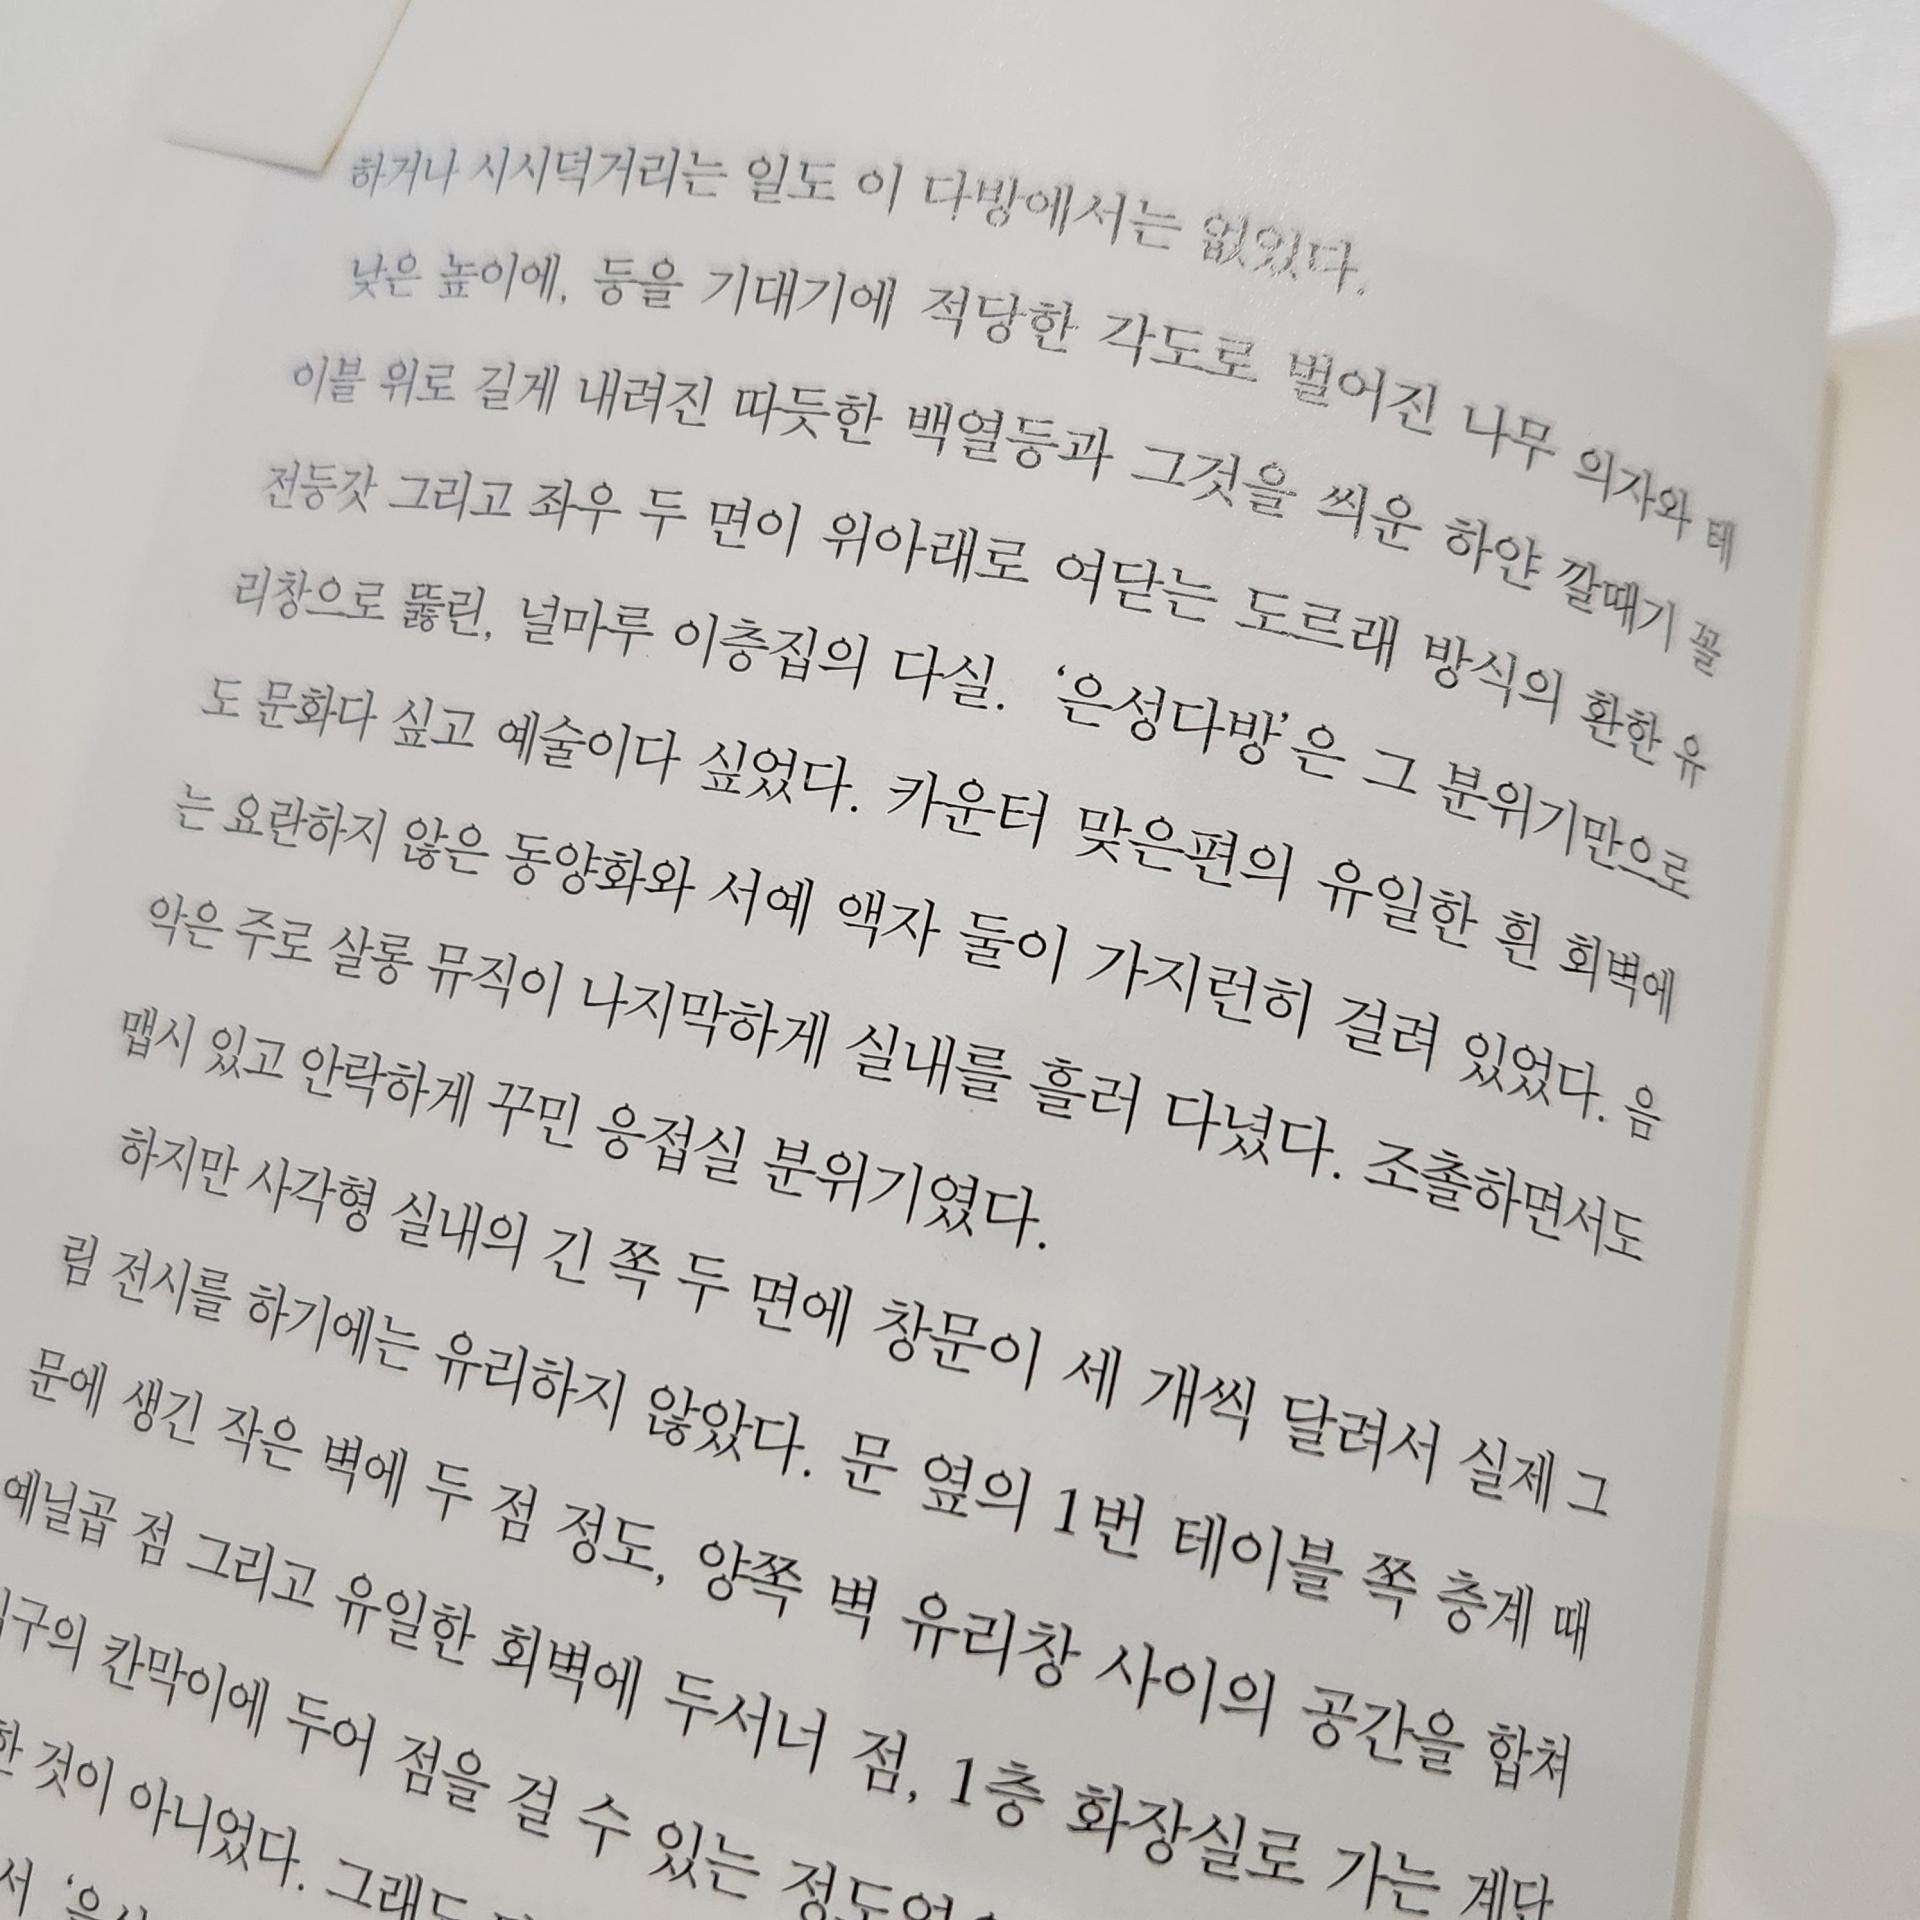 하거나 시시덕거리는 일도 이 다방에서는 없었다.
낮은 높이에, 등을 기대기에 적당한 각도로 벌어진 나무 의자와 테
이블 위로 길게 내려진 따듯한 백열등과 그것을 씌운 하얀 깔때기 꼴
전등갓 그리고 좌우 두 면이 위아래로 여닫는 도르래 방식의 환한 유
리창으로 뚫린, 널마루 이층집의 다실. ‘은성다방’은 그 분위기만으로
도 문화다 싶고 예술이다 싶었다. 카운터 맞은편의 유일한 흰 회벽에
는 요란하지 않은 동양화와 서예 액자 둘이 가지런히 걸려 있었다. 음
악은 주로 살롱 뮤직이 나지막하게 실내를 흘러 다녔다. 조촐하면서도
맵시 있고 안락하게 꾸민 응접실 분위기였다.
하지만 사각형 실내의 긴 쪽 두 면에 창문이 세 개씩 달려서 실제 그
림 전시를 하기에는 유리하지 않았다. 문 옆의 1번 테이블 쪽 층계 때
문에 생긴 작은 벽에 두 점 정도, 양쪽 벽 유리창 사이의 공간을 합쳐
예닐곱 점 그리고 유일한 회벽에 두서너 점, 1층 화장실로 가는 계단
입구의 칸막이에 두어 점을 걸 수 있는
한 것이 아니었다. 그래도
서